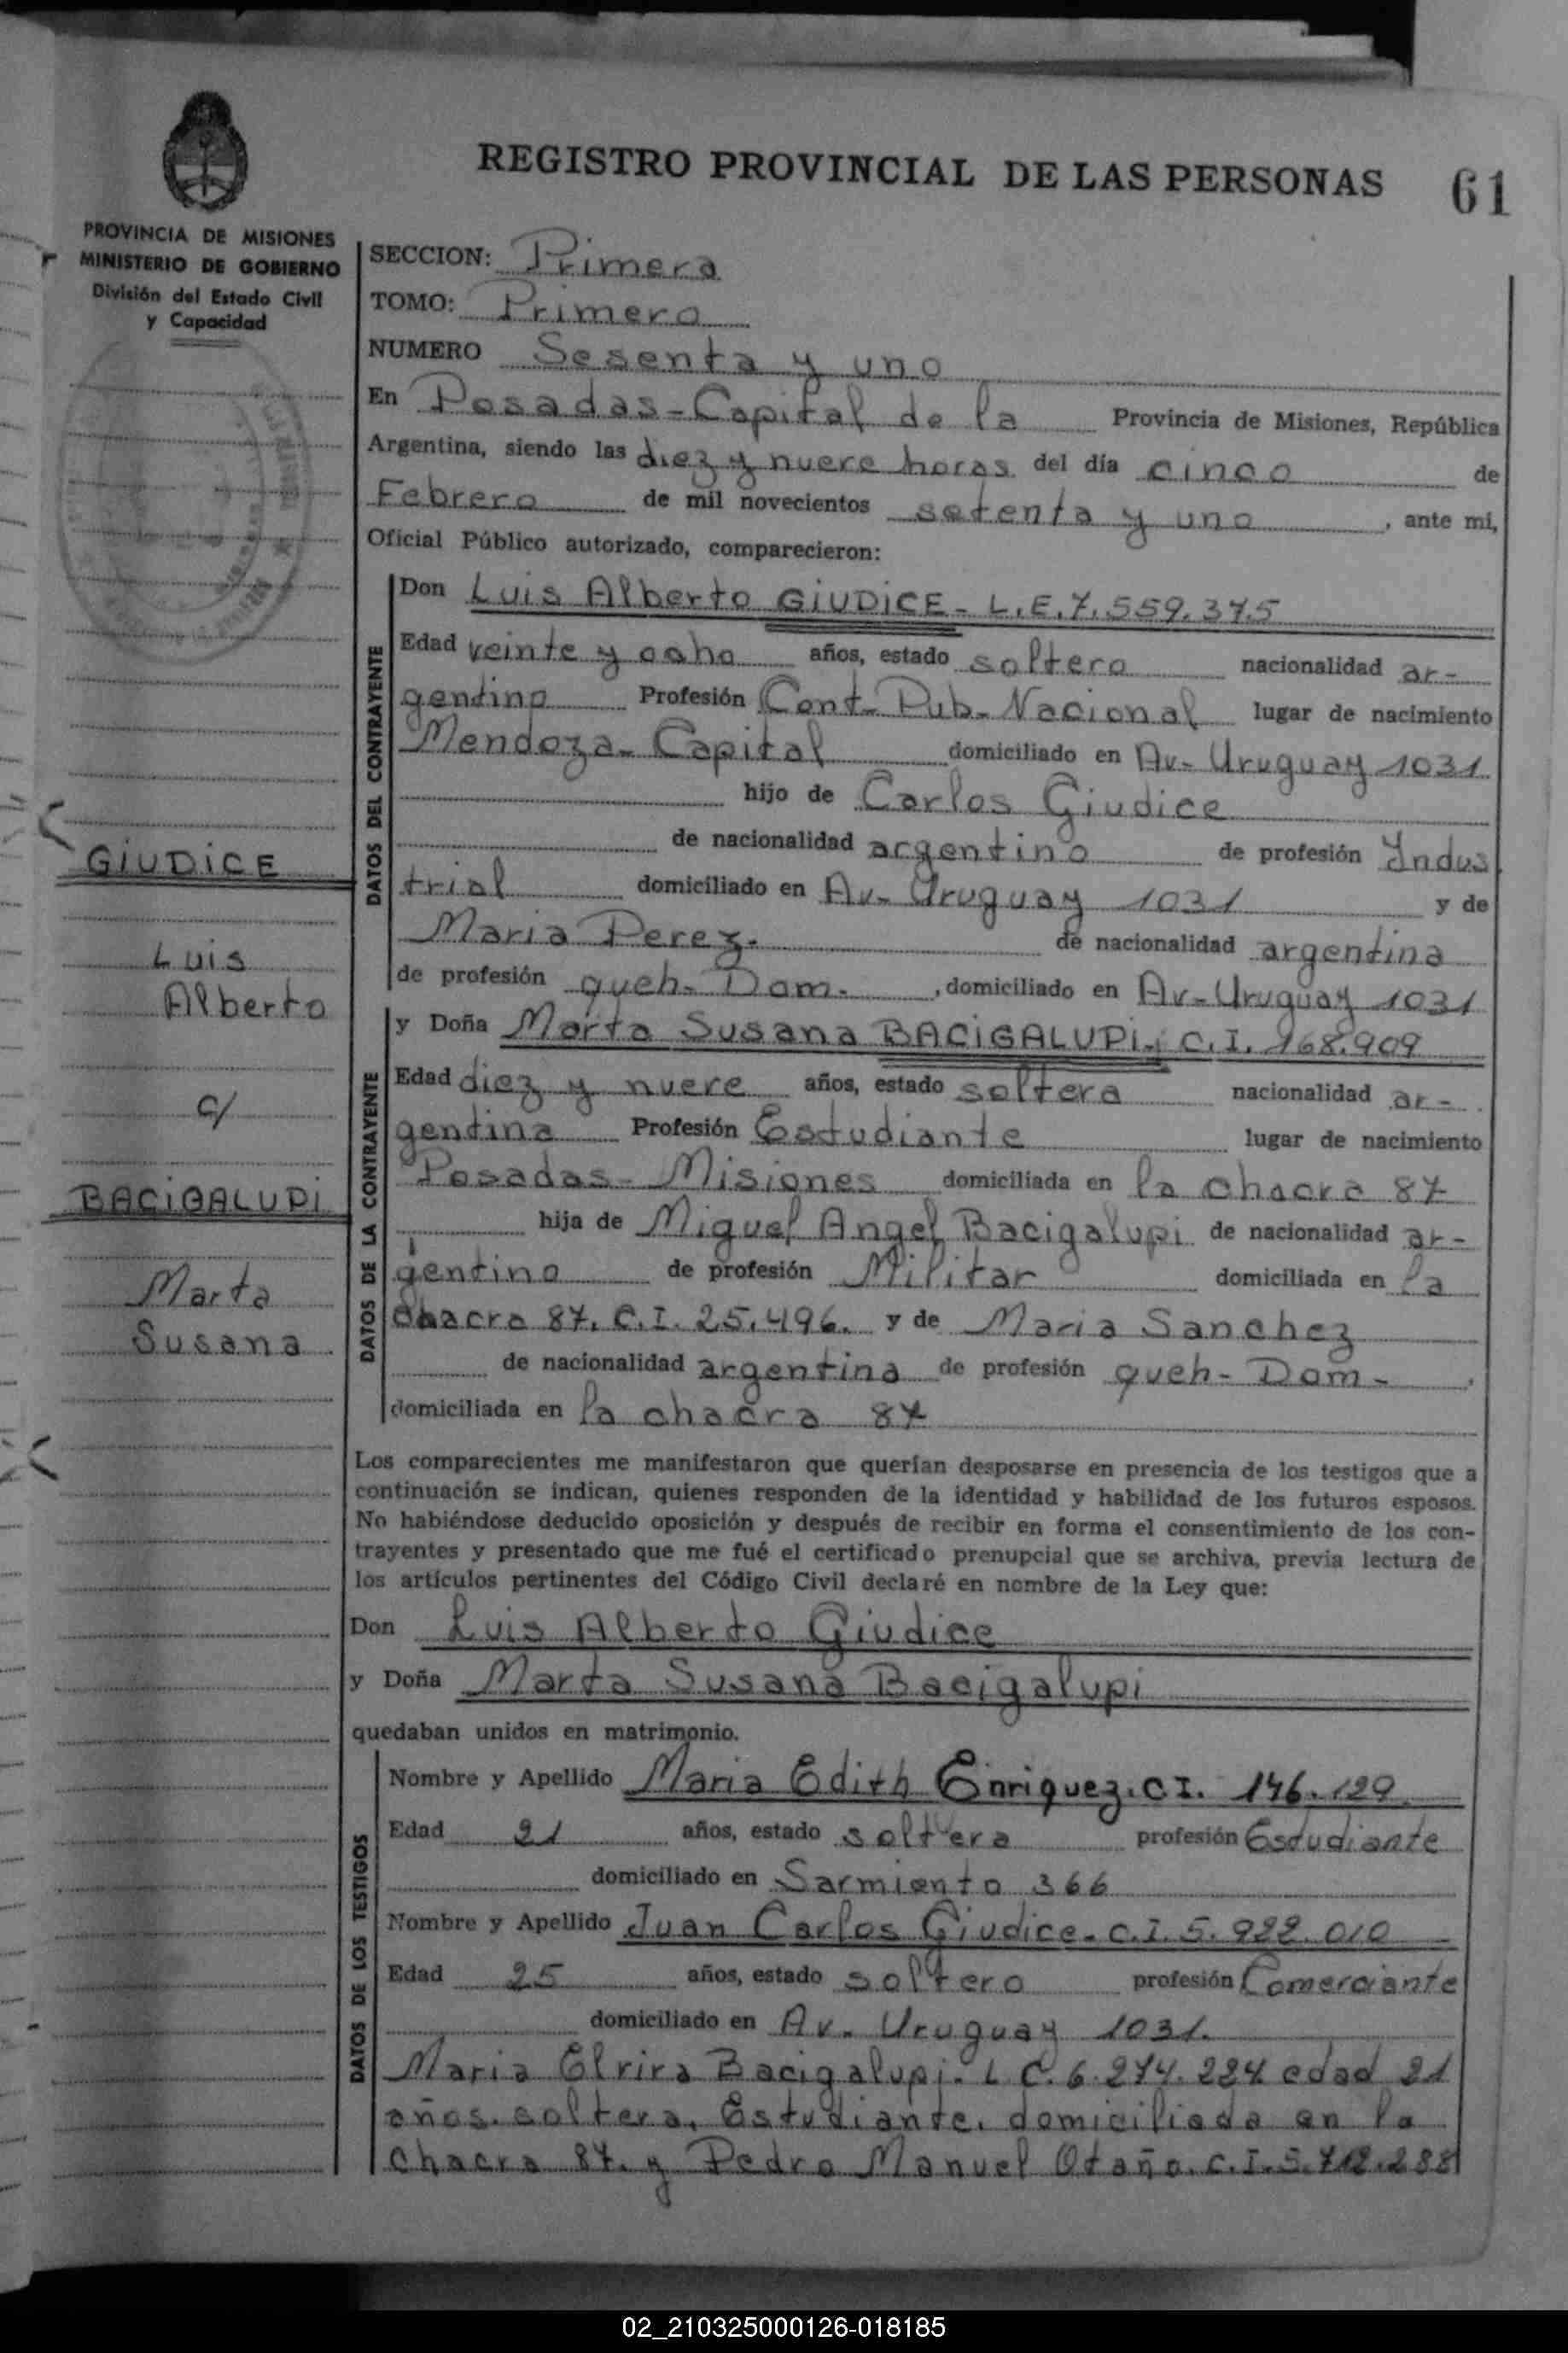 REGISTRO PROVINCIAL DE LAS PERSONAS 61
PROVINCIA DE MISIONES
MINISTERIO DE GOBIERNO
División del Estado Civil
y Capacidad
SECCION: Primera
TOMO: Primero
NUMERO Sesenta y uno
En Posadas-Capital de la Provincia de Misiones, República
Argentina, siendo las diez y nueve horas del día cinco de
Febrero de mil novecientos setenta y uno, ante mí,
Oficial Público autorizado, comparecieron:
DATOS DEL CONTRAYENTE
Don Luis Alberto GIUDICE- L.E.7.559.375
Edad veinte y ocho años, estado soltero nacionalidad ar-
gentino Profesión Cont- Pub- Nacional lugar de nacimiento
Mendoza- Capital domiciliado en Av- Uruguay 1031
hijo de Carlos Giudice
de nacionalidad argentino de profesión Indus
trial domiciliado en Av- Uruguay 1031 y de
Maria Perez- de nacionalidad argentina
de profesión queh- Dom-, domiciliado en Av-Uruguay 1031
GIUDICE
Luis
Alberto
c/
BACIGALUPI
Marta
Susana
DATOS DE LA CONTRAYENTE
y Doña Marta Susana BACIGALUPI-; C.I. 168.909
Edad diez y nueve años, estado soltera nacionalidad ar-
gentina Profesión Estudiante lugar de nacimiento
Posadas- Misiones domiciliada en la chacra 87
hija de Miguel Angel Bacigalupi de nacionalidad ar-
gentino de profesión Militar domiciliada en la
chacra 87. C.I. 25.496. y de Maria Sanchez
de nacionalidad argentina de profesión queh- Dom-,
domiciliada en la chacra 87
Los comparecientes me manifestaron que querían desposarse en presencia de los testigos que a
continuación se indican, quienes responden de la identidad y habilidad de los futuros esposos.
No habiéndose deducido oposición y después de recibir en forma el consentimiento de los con-
trayentes y presentado que me fué el certificado prenupcial que se archiva, previa lectura de
los artículos pertinentes del Código Civil declaré en nombre de la Ley que:
Don Luis Alberto Giudice
y Doña Marta Susana Bacigalupi
quedaban unidos en matrimonio.
DATOS DE LOS TESTIGOS
Nombre y Apellido Maria Edith Enriquez. C I. 146.129
Edad 21 años, estado soltera profesión Estudiante
domiciliado en Sarmiento 366
Nombre y Apellido Juan Carlos Giudice- C.I. 5.922.010
Edad 25 años, estado soltero profesión Comerciante
domiciliado en Av- Uruguay 1031.
Maria Elvira Bacigalupi- L C. 6.274.224 edad 21
años. soltera, Estudiante. domiciliada en la
chacra 87. y Pedro Manuel Otaño. C.I.5.712.288
02_210325000126-018185